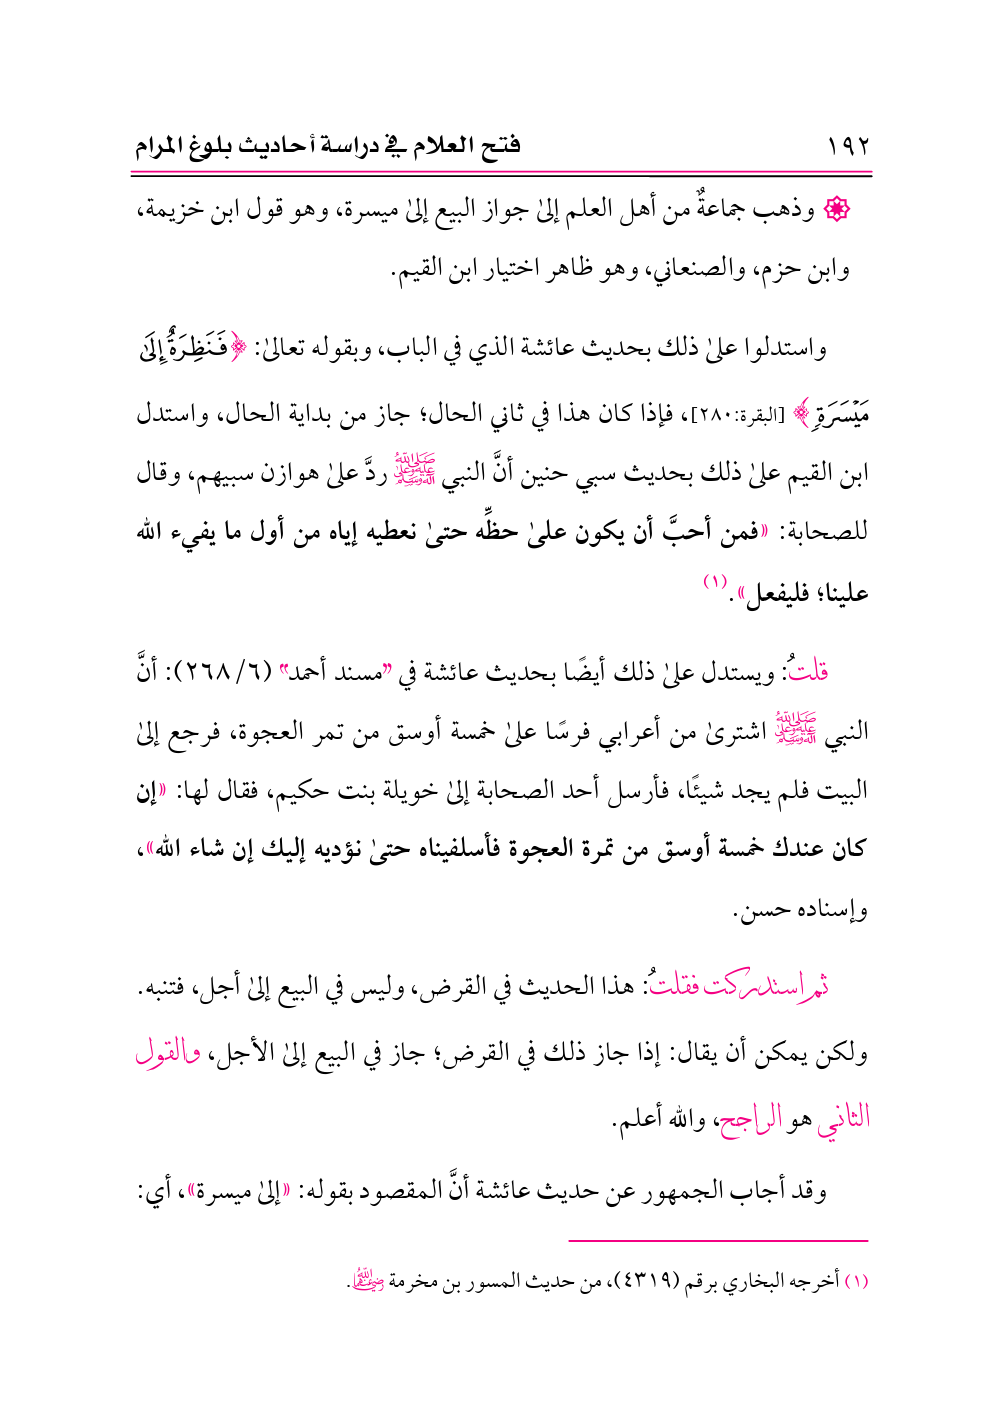 ١٩٢ فتح العلام في دراسة أحاديث بلوغ المرام
وذهب جماعةٌ من أهل العلم إلىٰ جواز البيع إلىٰ ميسرة، وهو قول ابن خزيمة،
وابن حزم، والصنعاني، وهو ظاهر اختيار ابن القيم.
واستدلوا علىٰ ذلك بحديث عائشة الذي في الباب، وبقوله تعالىٰ: ﴿فَنَظِرَةٌ إِلَىٰ
مَيْسَرَةٍ﴾ [البقرة:٢٨٠]، فإذا كان هذا في ثاني الحال؛ جاز من بداية الحال، واستدل
ابن القيم علىٰ ذلك بحديث سبي حنين أنَّ النبي ﷺ ردَّ علىٰ هوازن سبيهم، وقال
للصحابة: «فمن أحبَّ أن يكون علىٰ حظِّه حتىٰ نعطيه إياه من أول ما يفيء الله
علينا؛ فليفعل».(١)
قلتُ: ويستدل علىٰ ذلك أيضًا بحديث عائشة في "مسند أحمد" (٦/ ٢٦٨): أنَّ
النبي ﷺ اشترىٰ من أعرابي فرسًا علىٰ خمسة أوسق من تمر العجوة، فرجع إلىٰ
البيت فلم يجد شيئًا، فأرسل أحد الصحابة إلىٰ خويلة بنت حكيم، فقال لها: «إن
كان عندك خمسة أوسق من تمرة العجوة فأسلفيناه حتىٰ نؤديه إليك إن شاء الله»،
وإسناده حسن.
ثم استدركت فقلتُ: هذا الحديث في القرض، وليس في البيع إلىٰ أجل، فتنبه.
ولكن يمكن أن يقال: إذا جاز ذلك في القرض؛ جاز في البيع إلىٰ الأجل، والقول
الثاني هو الراجح، والله أعلم.
وقد أجاب الجمهور عن حديث عائشة أنَّ المقصود بقوله: «إلىٰ ميسرة»، أي:
(١) أخرجه البخاري برقم (٤٣١٩)، من حديث المسور بن مخرمة رضي الله عنهما.